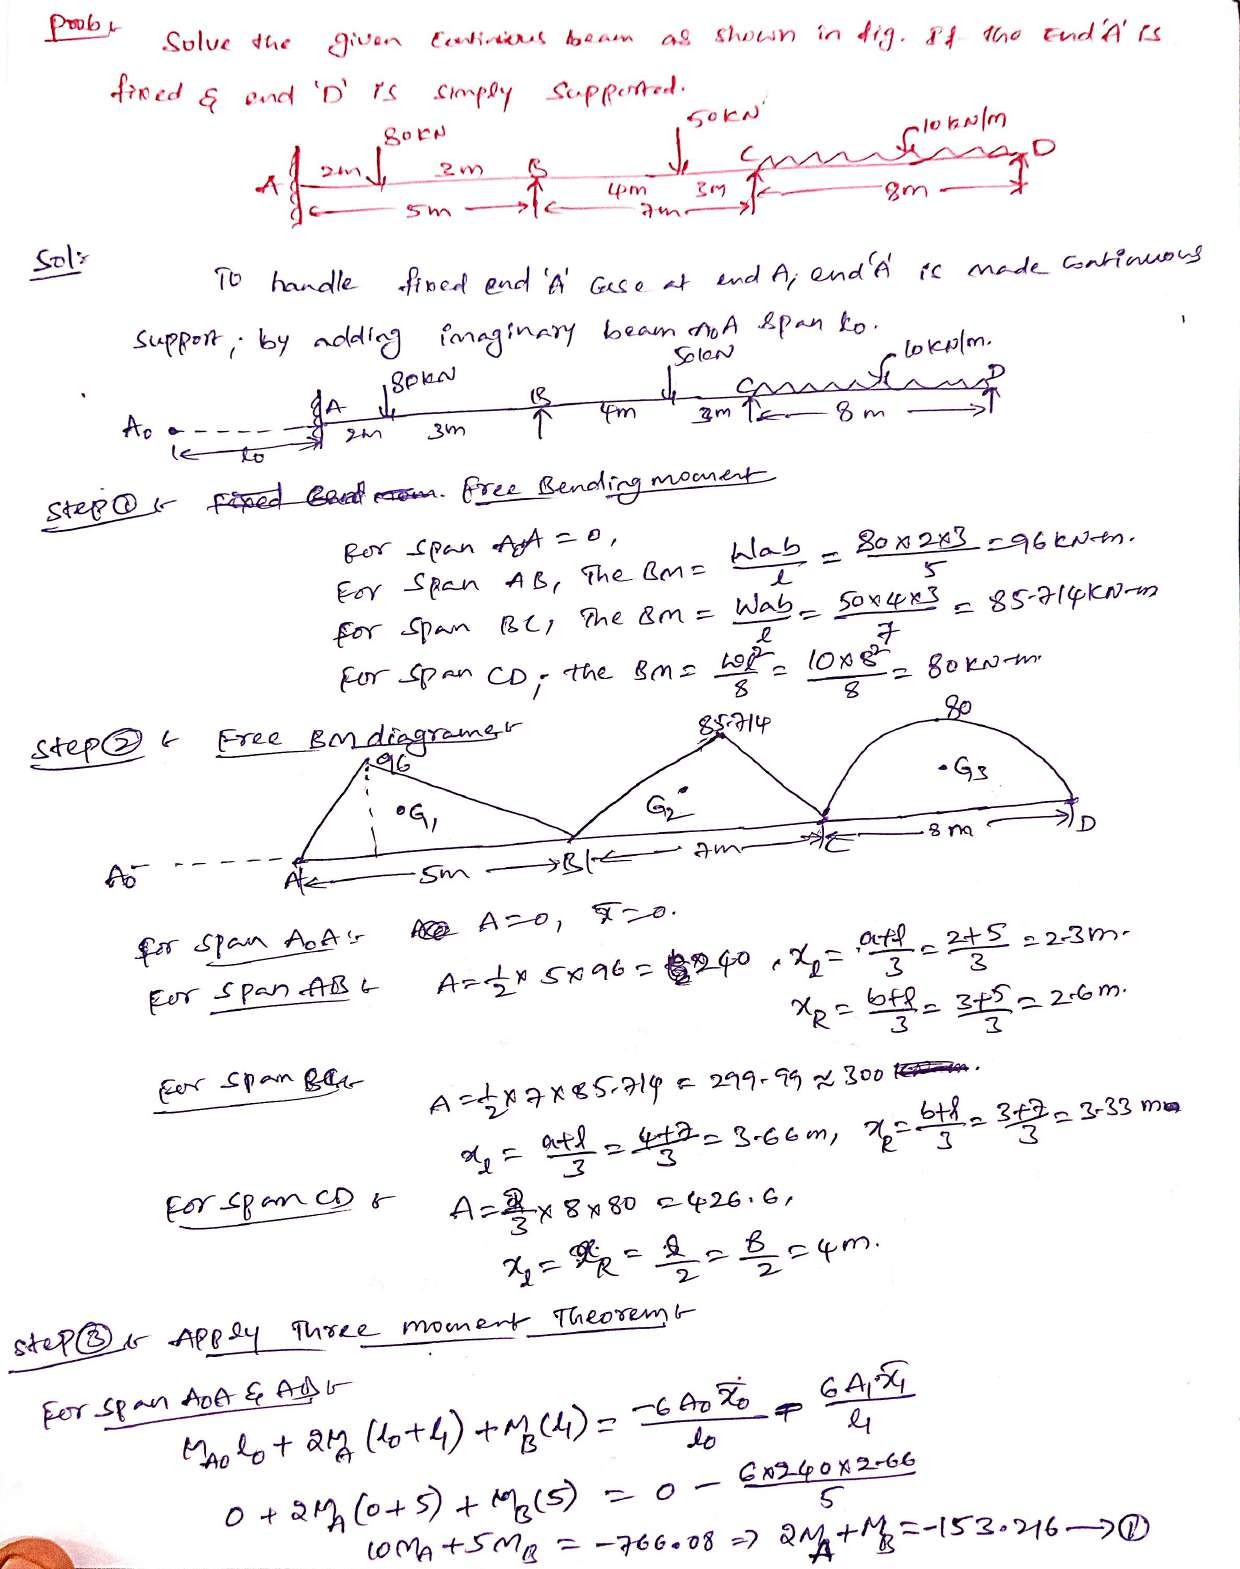 Prob:-
Solve the given Continious beam as shown in fig. If the End 'A' is
fixed & end 'D' is simply supported.
80KN 50KN 10KN/m
A 2m 3m B 4m 3m C D
5m 7m 8m
Sol:-
To handle fixed end 'A' Case at end A, end 'A' is made continuous
support, by adding imaginary beam A₀A span l₀.
80KN 50KN 10KN/m.
A₀ A 2m 3m B 4m 3m C 8m D
l₀
Step ① :- Free Bending moment
For span A₀A = 0,
For Span AB, The BM = Wab/l = 80x2x3/5 = 96 KN-m.
For span BC, The BM = Wab/l = 50x4x3/7 = 85.714KN-m
For span CD, the BM = ωl²/8 = 10x8²/8 = 80KN-m
Step ② :- Free BM diagrame:-
96 85.714 80
G₁ G₂ G₃
A₀ A 5m B 7m C 8m D
For span A₀A :- A=0, x̄=0.
For Span AB :- A = 1/2 x 5x96 = 240, x_l = a+l/3 = 2+5/3 = 2.3m.
x_R = b+l/3 = 3+5/3 = 2.6m.
For span BC:- A = 1/2 x 7 x 85.714 = 299.99 ≈ 300
x_l = a+l/3 = 4+7/3 = 3.66m, x_R = b+l/3 = 3+7/3 = 3.33 m
For span CD :- A = 2/3 x 8x80 = 426.6,
x_l = x_R = l/2 = 8/2 = 4m.
Step ③ :- Apply Three moment Theorem:-
For span A₀A & AB :-
M_A₀ l₀ + 2M_A (l₀+l₁) + M_B (l₁) = -6A₀x̄₀/l₀ - 6A₁x̄₁/l₁
0 + 2M_A (0+5) + M_B (5) = 0 - 6x240x2.66/5
10M_A + 5M_B = -766.08 => 2M_A + M_B = -153.216 → ①